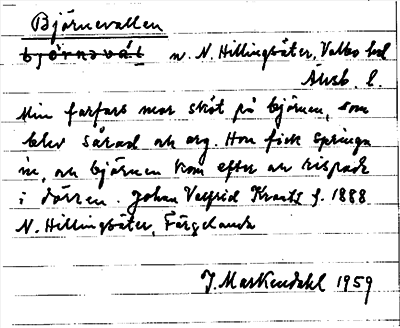 Björnevallen
björnəvál n. N. Hillingsäter, Valbo hd
Älvsb. l.
Min farfars mor sköt på björnen, som
blev sårad och arg. Hon fick springa
in, och björnen kom efter och rispade
i dörren. Johan Valfrid Krantz f. 1888
N. Hillingsäter, Färgelanda
J. Markendahl 1959